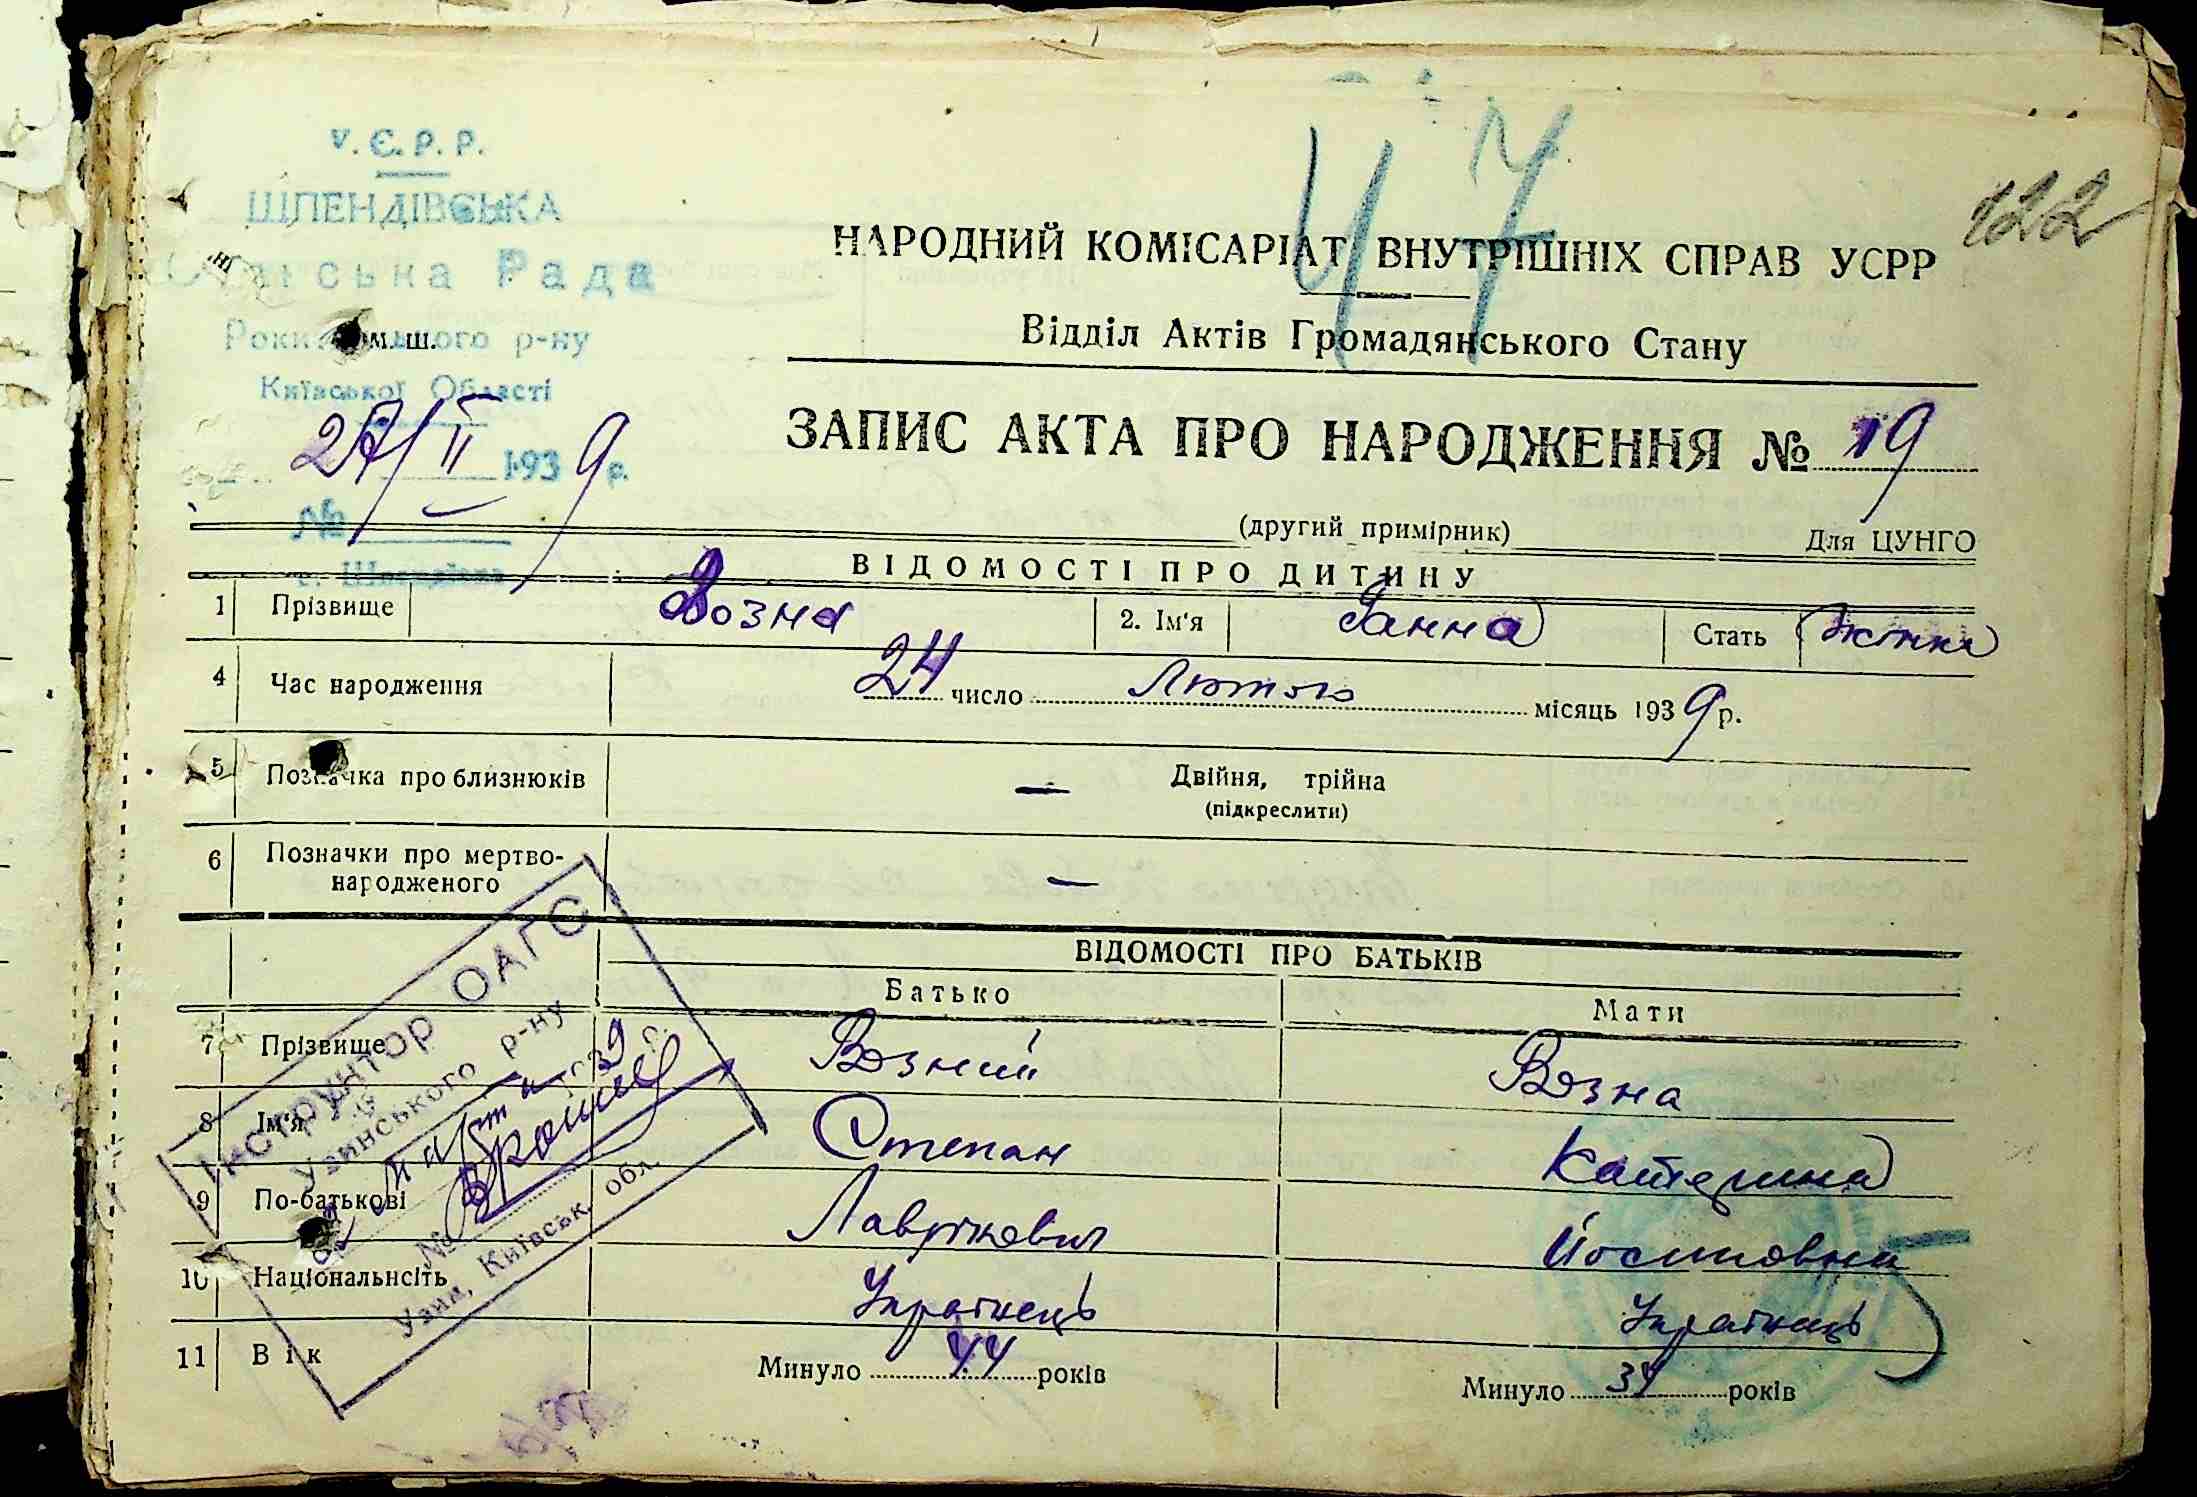 У.С.Р.Р.
ШПЕНДІВСЬКА
Сільська Рада
Рокитнянського р-ну
Київської Області
27/II 1939 р.
№
с. Шпендівка
47
122
НАРОДНИЙ КОМІСАРІАТ ВНУТРІШНІХ СПРАВ УСРР
Відділ Актів Громадянського Стану
ЗАПИС АКТА ПРО НАРОДЖЕННЯ № 19
(другий примірник) Для ЦУНГО
ВІДОМОСТІ ПРО ДИТИНУ
1 Прізвище Возна 2. Ім'я Ганна Стать жінка
4 Час народження 24 число Лютого місяць 1939 р.
5 Позначка про близнюків — Двійня, трійна
(підкреслити)
6 Позначки про мертво-
народженого —
ВІДОМОСТІ ПРО БАТЬКІВ
Батько Мати
7 Прізвище Возний Возна
8 Ім'я Степан Катерина
9 По-батькові Лаврінович Йосиповна
10 Національнсіть Українець Українець
11 Вік Минуло 44 років Минуло 34 років
Інструктор ОАГС
Узинського р-ну
марта 1939 р.
№
Узин, Київськ. обл.